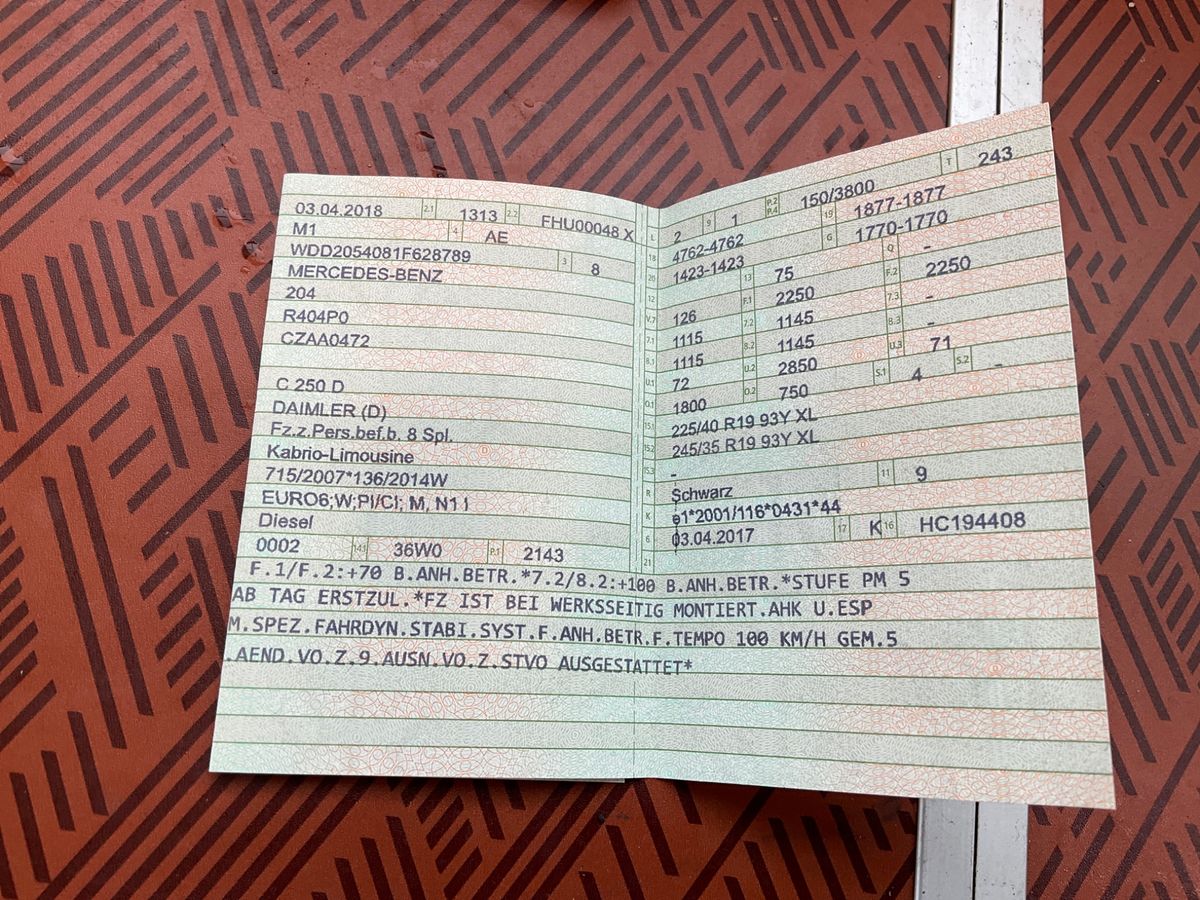 03.04.2018 2.1 1313 2.2 FHU00048 X
M1 4 AE
WDD2054081F628789 3 8
MERCEDES-BENZ
204
R404P0
CZAA0472
C 250 D
DAIMLER (D)
Fz.z.Pers.bef.b. 8 Spl.
Kabrio-Limousine
715/2007*136/2014W
EURO6;W;PI/CI; M, N1 I
Diesel
0002 14.1 36W0 P.1 2143
L 2 9 1 P.2 P.4 150/3800 T 243
18 4762-4762 19 1877-1877
20 1423-1423 G 1770-1770
12 - 13 75 Q -
V.7 126 F.1 2250 F.2 2250
7.1 1115 7.2 1145 7.3 -
8.1 1115 8.2 1145 8.3 -
U.1 72 U.2 2850 U.3 71
O.1 1800 O.2 750 S.1 4 S.2 -
15.1 225/40 R19 93Y XL
15.2 245/35 R19 93Y XL
15.3 -
R Schwarz 11 9
K e1*2001/116*0431*44
6 03.04.2017 17 K 16 HC194408
21
F.1/F.2:+70 B.ANH.BETR.*7.2/8.2:+100 B.ANH.BETR.*STUFE PM 5
AB TAG ERSTZUL.*FZ IST BEI WERKSSEITIG MONTIERT.AHK U.ESP
M.SPEZ.FAHRDYN.STABI.SYST.F.ANH.BETR.F.TEMPO 100 KM/H GEM.5
.AEND.VO.Z.9.AUSN.VO.Z.STVO AUSGESTATTET*